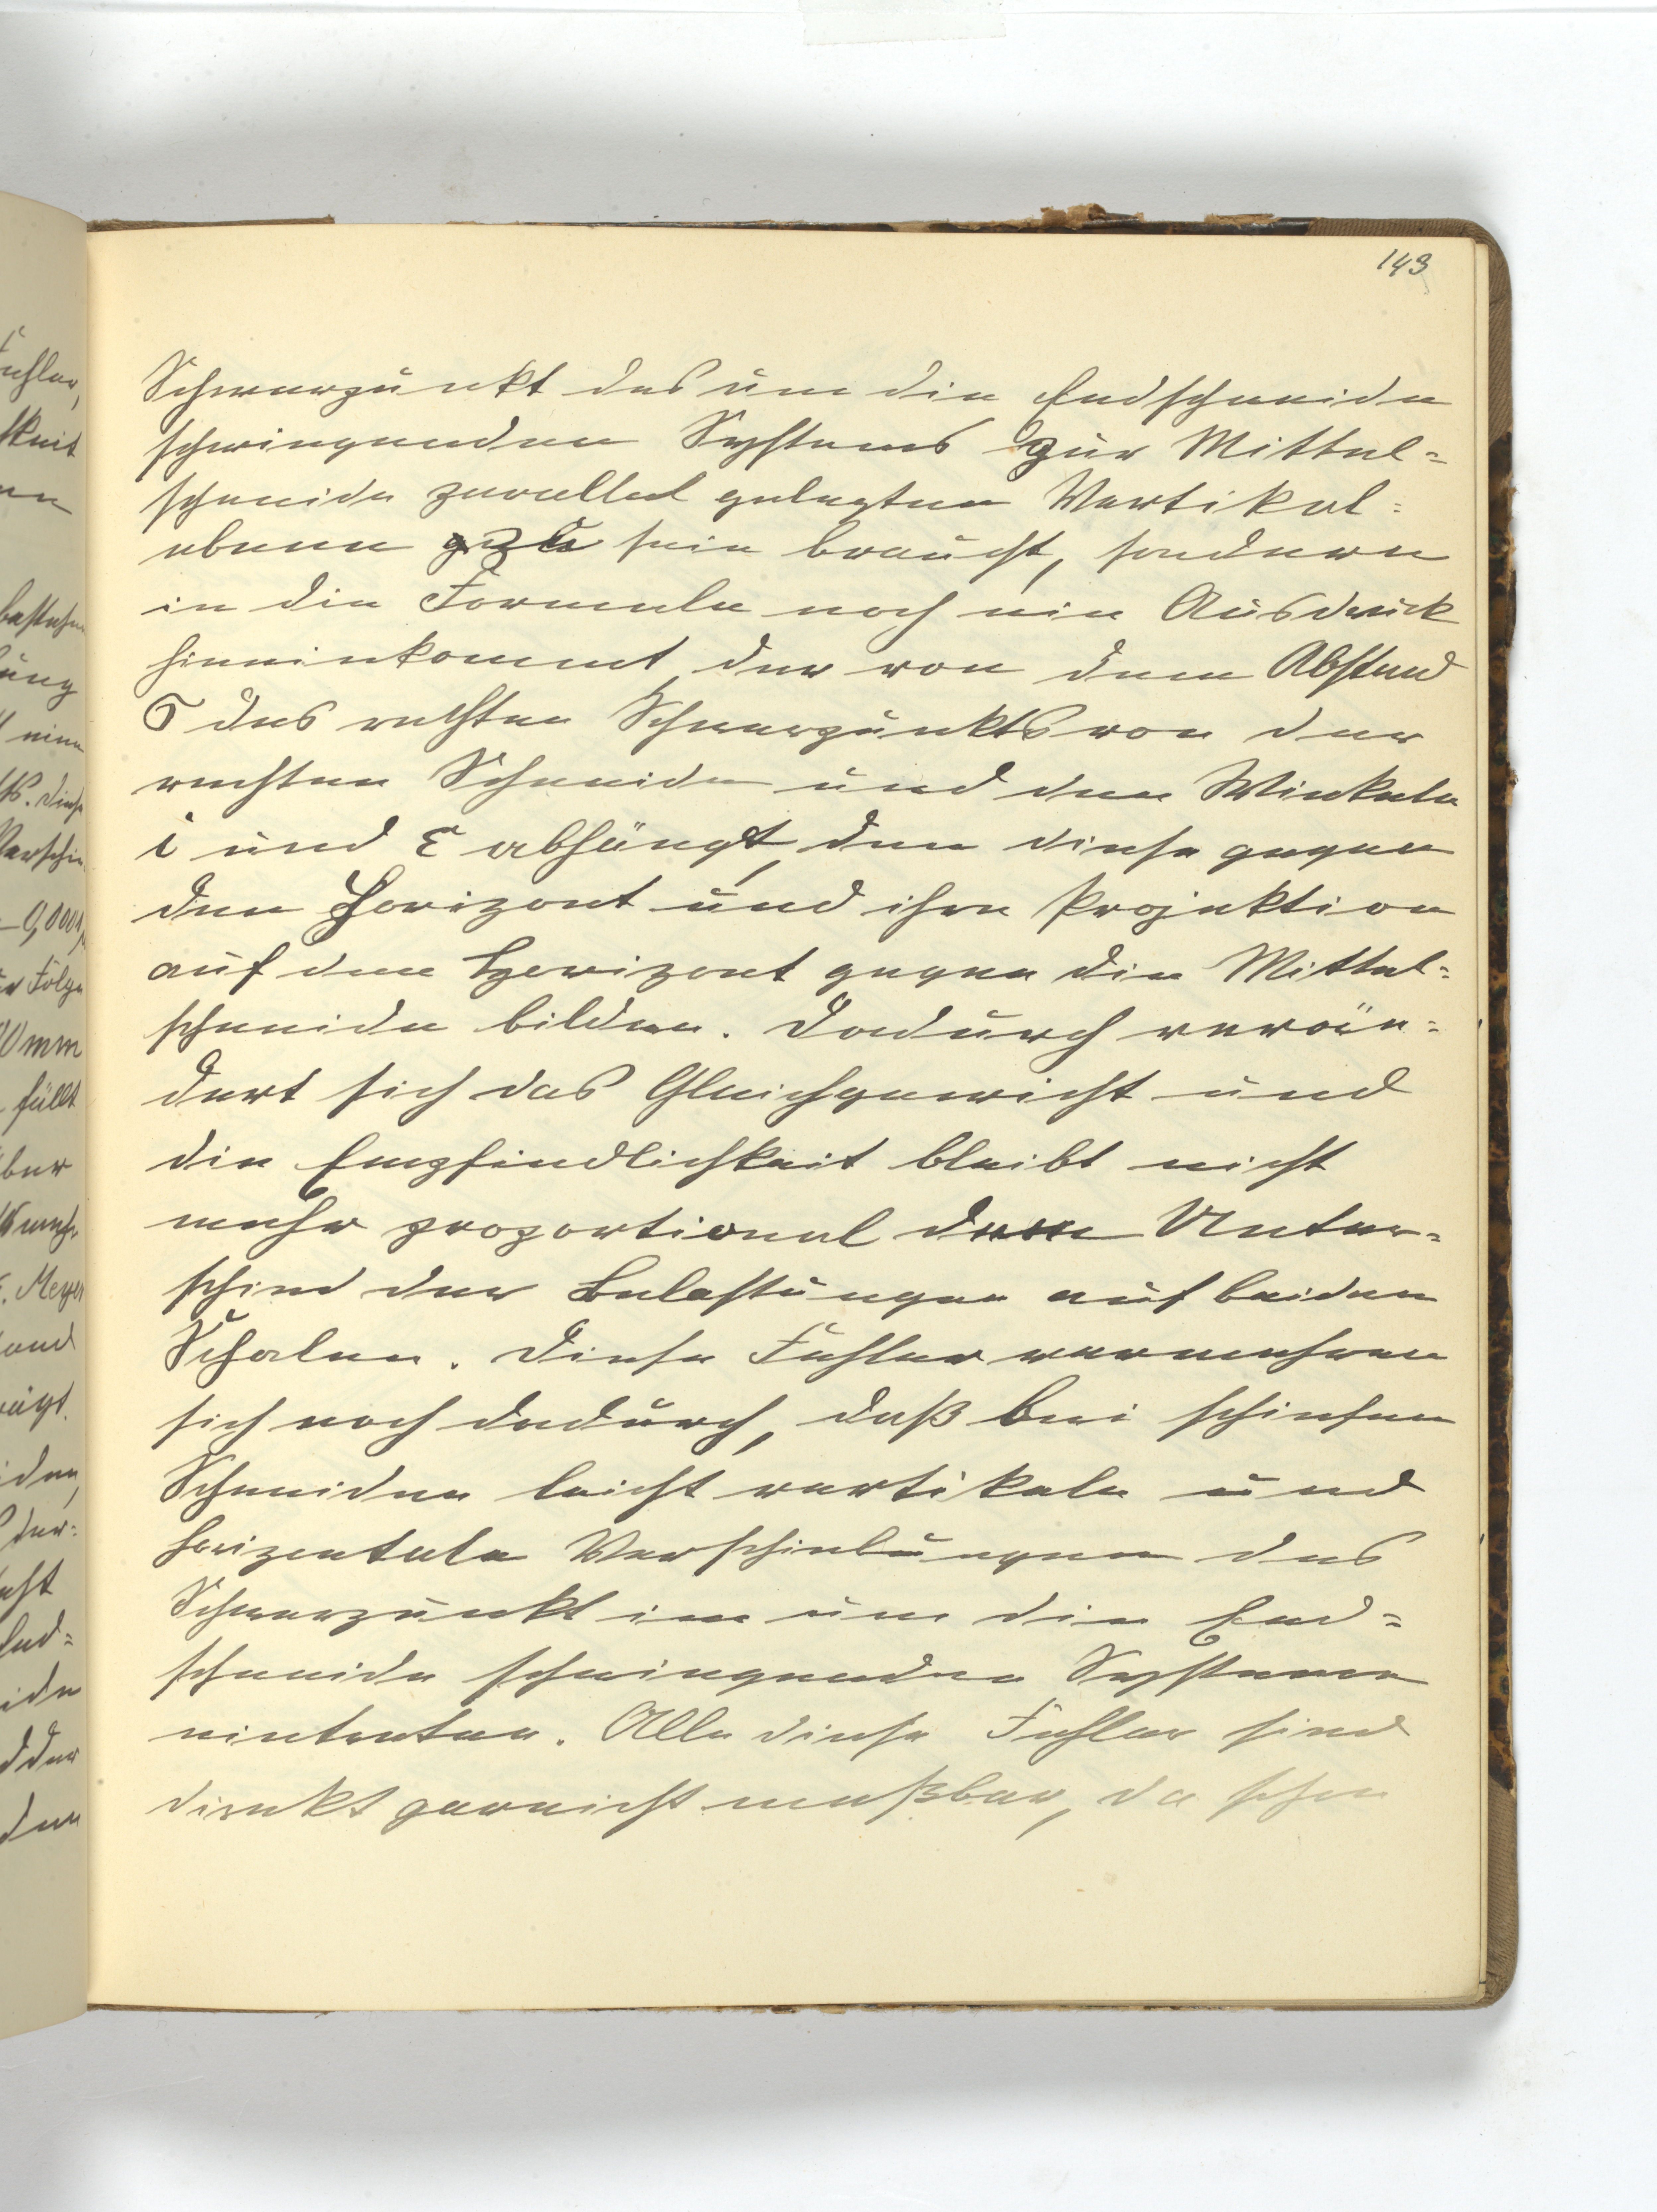 143
Schwerpunkt des um die Endschneide
schwingenden Systems zur Mittel=
schneide parallel gelegten Vertikal=
ebene zu sein braucht, sondern
in die Formeln noch ein Ausdruck
hineinkommt, der von dem Abstand
σ des rechten Schwerpunkts von der
rechten Schneide und den Winkeln
i und ε abhängt, den diese gegen
den Horizont und ihre Projektion
auf dem Horizont gegen die Mittel=
schneide bilden. Dadurch verän=
dert sich das Gleichgewicht und
die Empfindlichkeit bleibt nicht
mehr proportional dem Unter=
schied der Belastungen auf beiden
Schalen. Diese Fehler vermehren
sich noch dadurch, daß bei schiefen
Schneiden leicht vertikale und
horizontale Verschiebungen des
Schwerpunkt im um die End=
schneide schwingenden Systeme
eintreten. Alle diese Fehler sind
direkt garnicht meßbar, da schon